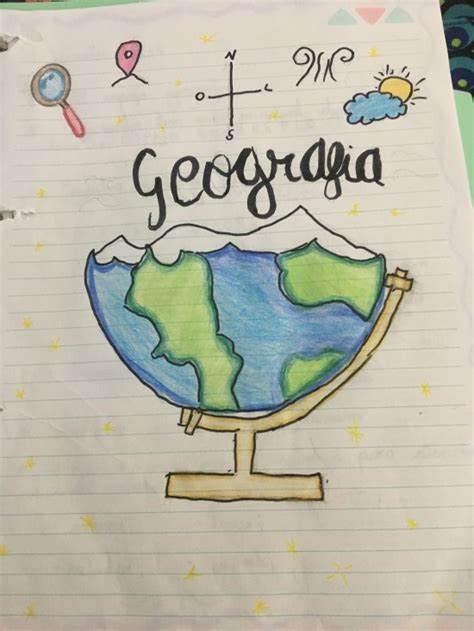 N
O L
S
Geografia